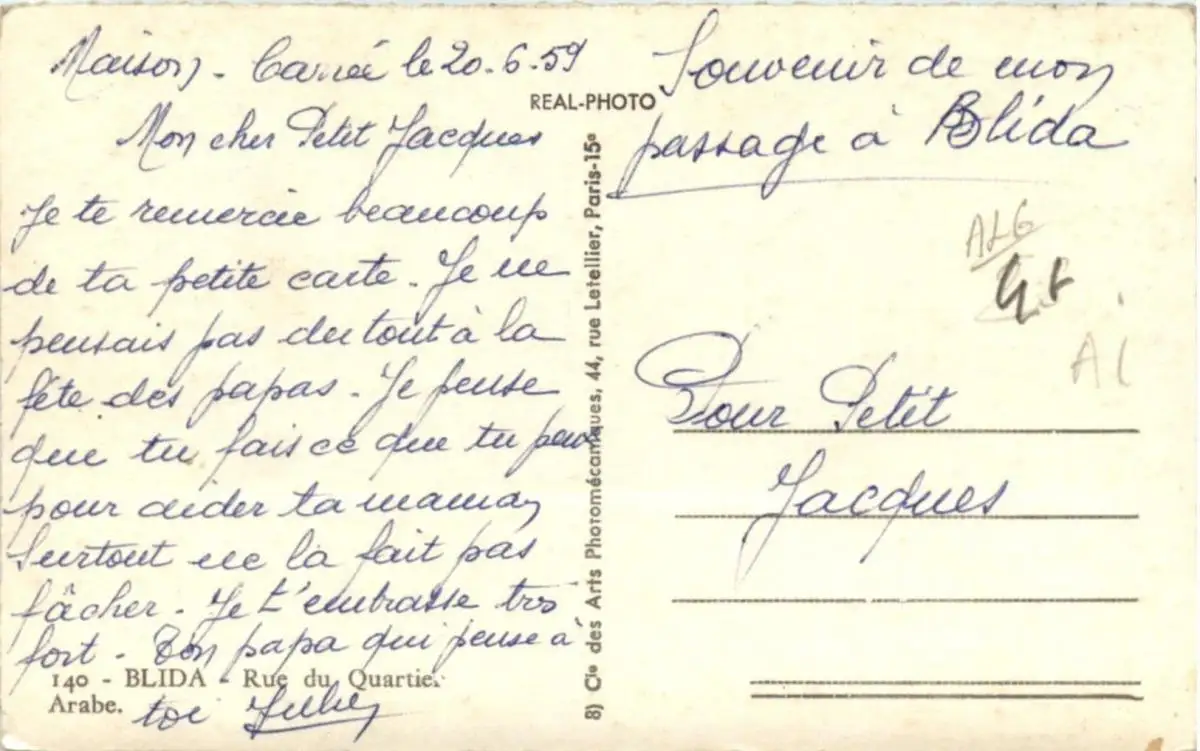 Maison-Carrée le 20-6-59
Mon cher Petit Jacques
Je te remercie beaucoup
de ta petite carte. Je ne
pensais pas du tout à la
fête des papas. Je pense
que tu fais ce que tu peux
pour aider ta maman
Surtout ne la fait pas
fâcher. Je t'embrasse très
fort. Ton papa qui pense à
toi
140 - BLIDA - Rue du Quartier
Arabe.
REAL-PHOTO
8) Cie des Arts Photomécaniques, 44, rue Letellier, Paris-15e
Souvenir de mon
passage à Blida
ALG
A1
Pour Petit
Jacques